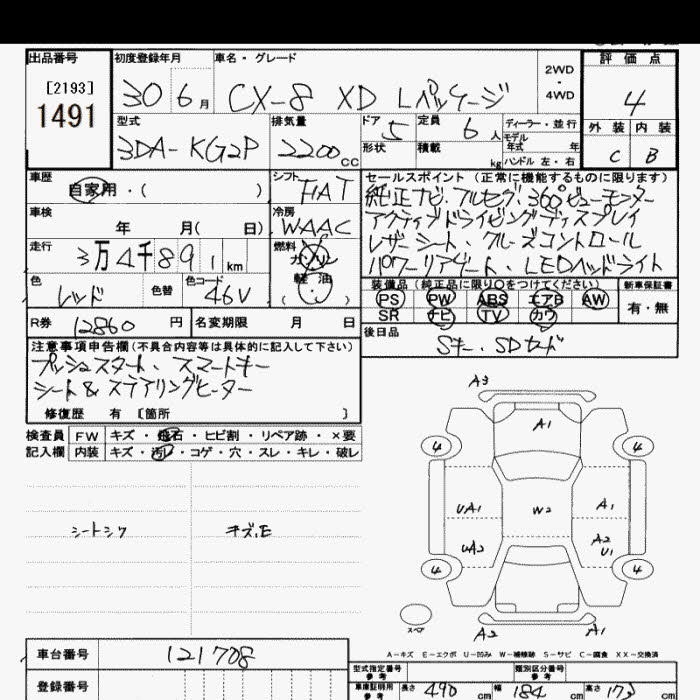 出品番号 初度登録年月 車名・グレード 評価点
[2193]
1491
30 6月 CX-8 XD Lパッケージ
2WD・4WD
4
型式 排気量 ドア 5 定員 6人 ディーラー・並行 外装 内装
3DA-KG2P 2200cc 形状 積載 kg モデル年式 年 ハンドル 左・右 C B
車歴 自家用・( ) シフト FIAT
セールスポイント (正常に機能するものに限ります)
純正ナビ、フルセグ、360°ビューモニター
車検 年 月( 日) 冷房 WAAC
アクティブドライビングディスプレイ
走行 3万4千891km 燃料 ガソリン
レザーシート、クルーズコントロール
軽油
パワーリアゲート、LEDヘッドライト
色 レッド 色替 色コード 46V
装備品 (純正品に限り○をつけてください) 新車保証書
PS PW ABS エアB AW 有・無
SR ナビ TV カワ
R券 12860円 名変期限 月 日
後日品 Sキー、SDカード
注意事項申告欄(不具合内容等は具体的に記入して下さい)
プッシュスタート、スマートキー
シート&ステアリングヒーター
修復歴 有 〔箇所 〕
検査員記入欄 FW キズ・飛石・ヒビ割・リペア跡・×要
内装 キズ・汚レ・コゲ・穴・スレ・キレ・破レ
シートシワ キズ、E
A3
A1
4 4
UA1 W2 A1
UA2 A2 U1
4 4
スペア
A2 A1
A-キズ E-エクボ U-凹み W-補修跡 S-サビ C-腐食 XX-交換済
車台番号 121708
型式指定番号 参考 類別区分番号 参考
登録番号
車庫証明用 参考 長さ 490cm 幅 184cm 高さ 173cm